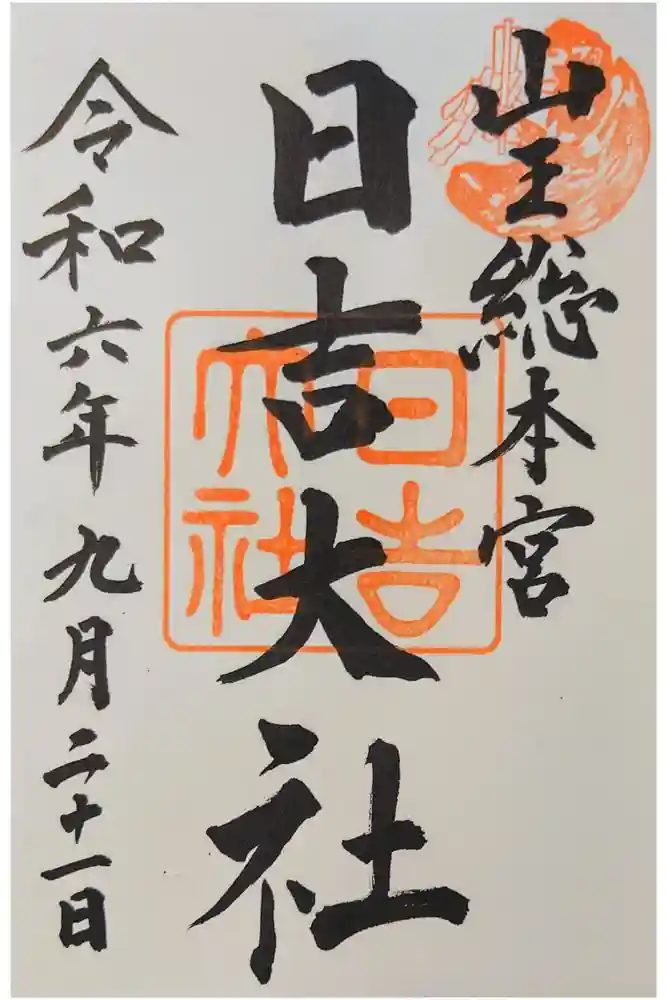 山王総本宮
日吉大社
日吉大社
令和六年九月二十一日